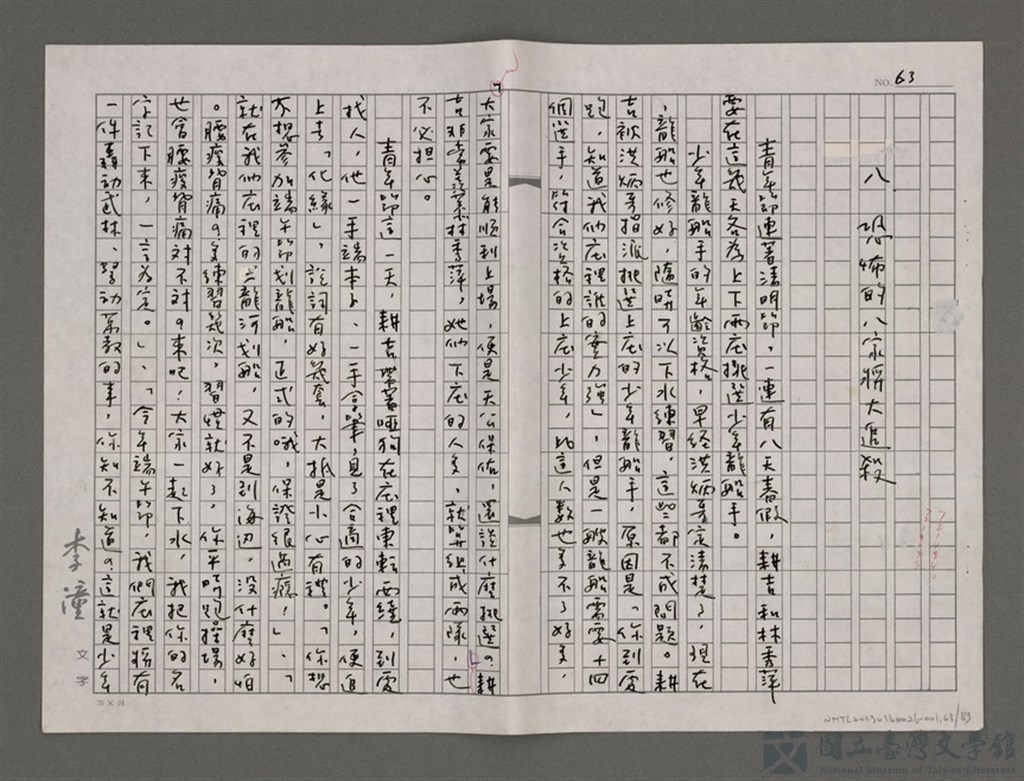 NO. 63
八、恐怖的八家將大追殺
青年節連著清明節,一連有八天春假,耕吉和林秀萍
要在這幾天各為上下兩庄挑選少年龍船手。
少年龍船手的年齡資格,早經洪炳哥定清楚了,現在
,龍船也修好,隨時可以下水練習,這些都不成問題。耕
吉被洪炳哥指派挑選上庄的少年龍船手,原因是「你到處
跑,知道我們庄裡誰的實力強」,但是一艘龍船需要十四
個選手,符合資格的上庄少年,比這人數也多不了好多,
大家要是能順利上場,便是天公保佑,還談什麼挑選?耕
吉非常羨慕林秀萍,她們下庄的人多,就算組成兩隊,也
不必担心。
青年節這一天,耕吉帶著啞狗在庄裡東轉西繞,到處
找人,他一手端本子、一手拿筆,見了合適的少年,便追
上去「化緣」,說詞有好幾套,大抵是小心有禮。「你想
不想參加端午節划龍船,正式的哦,保證很過癮!」、「
就在我們庄裡的二龍河划船,又不是到海边,没什麼好怕
。腰痠背痛?多練習幾次,習慣就好了,你平時跑操場,
也會腰痠背痛对不对?來吧!大家一起下水,我把你的名
字記下來,一言為定。」、「今年端午節,我們庄裡將有
一件轟動武林、驚動萬教的事,你知不知道?這就是少年
李潼
文字
25×24
國立臺灣文學館
National Museum of Taiwan Literature